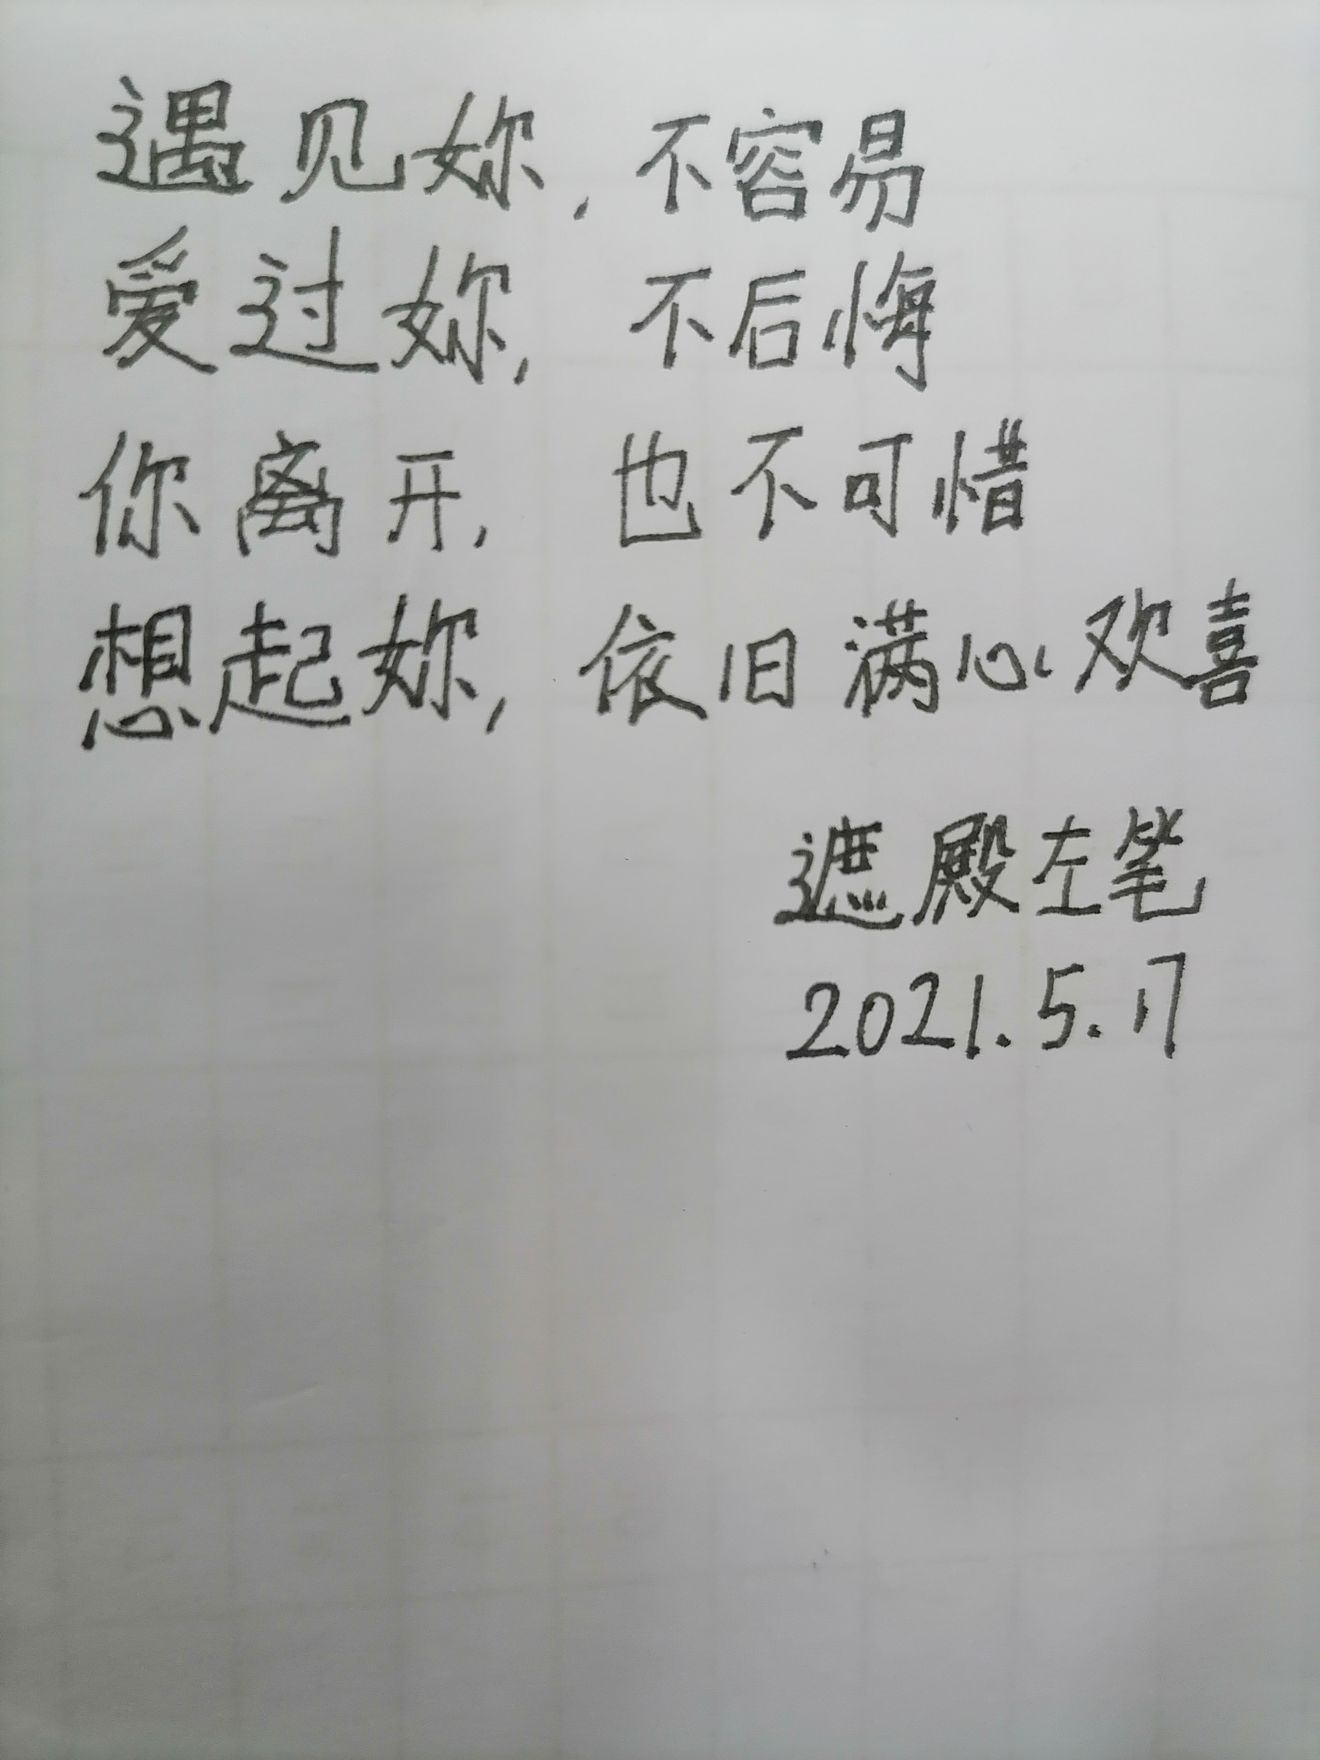 遇见妳，不容易
爱过妳，不后悔
你离开，也不可惜
想起妳，依旧满心欢喜
遮殿左笔
2021.5.17